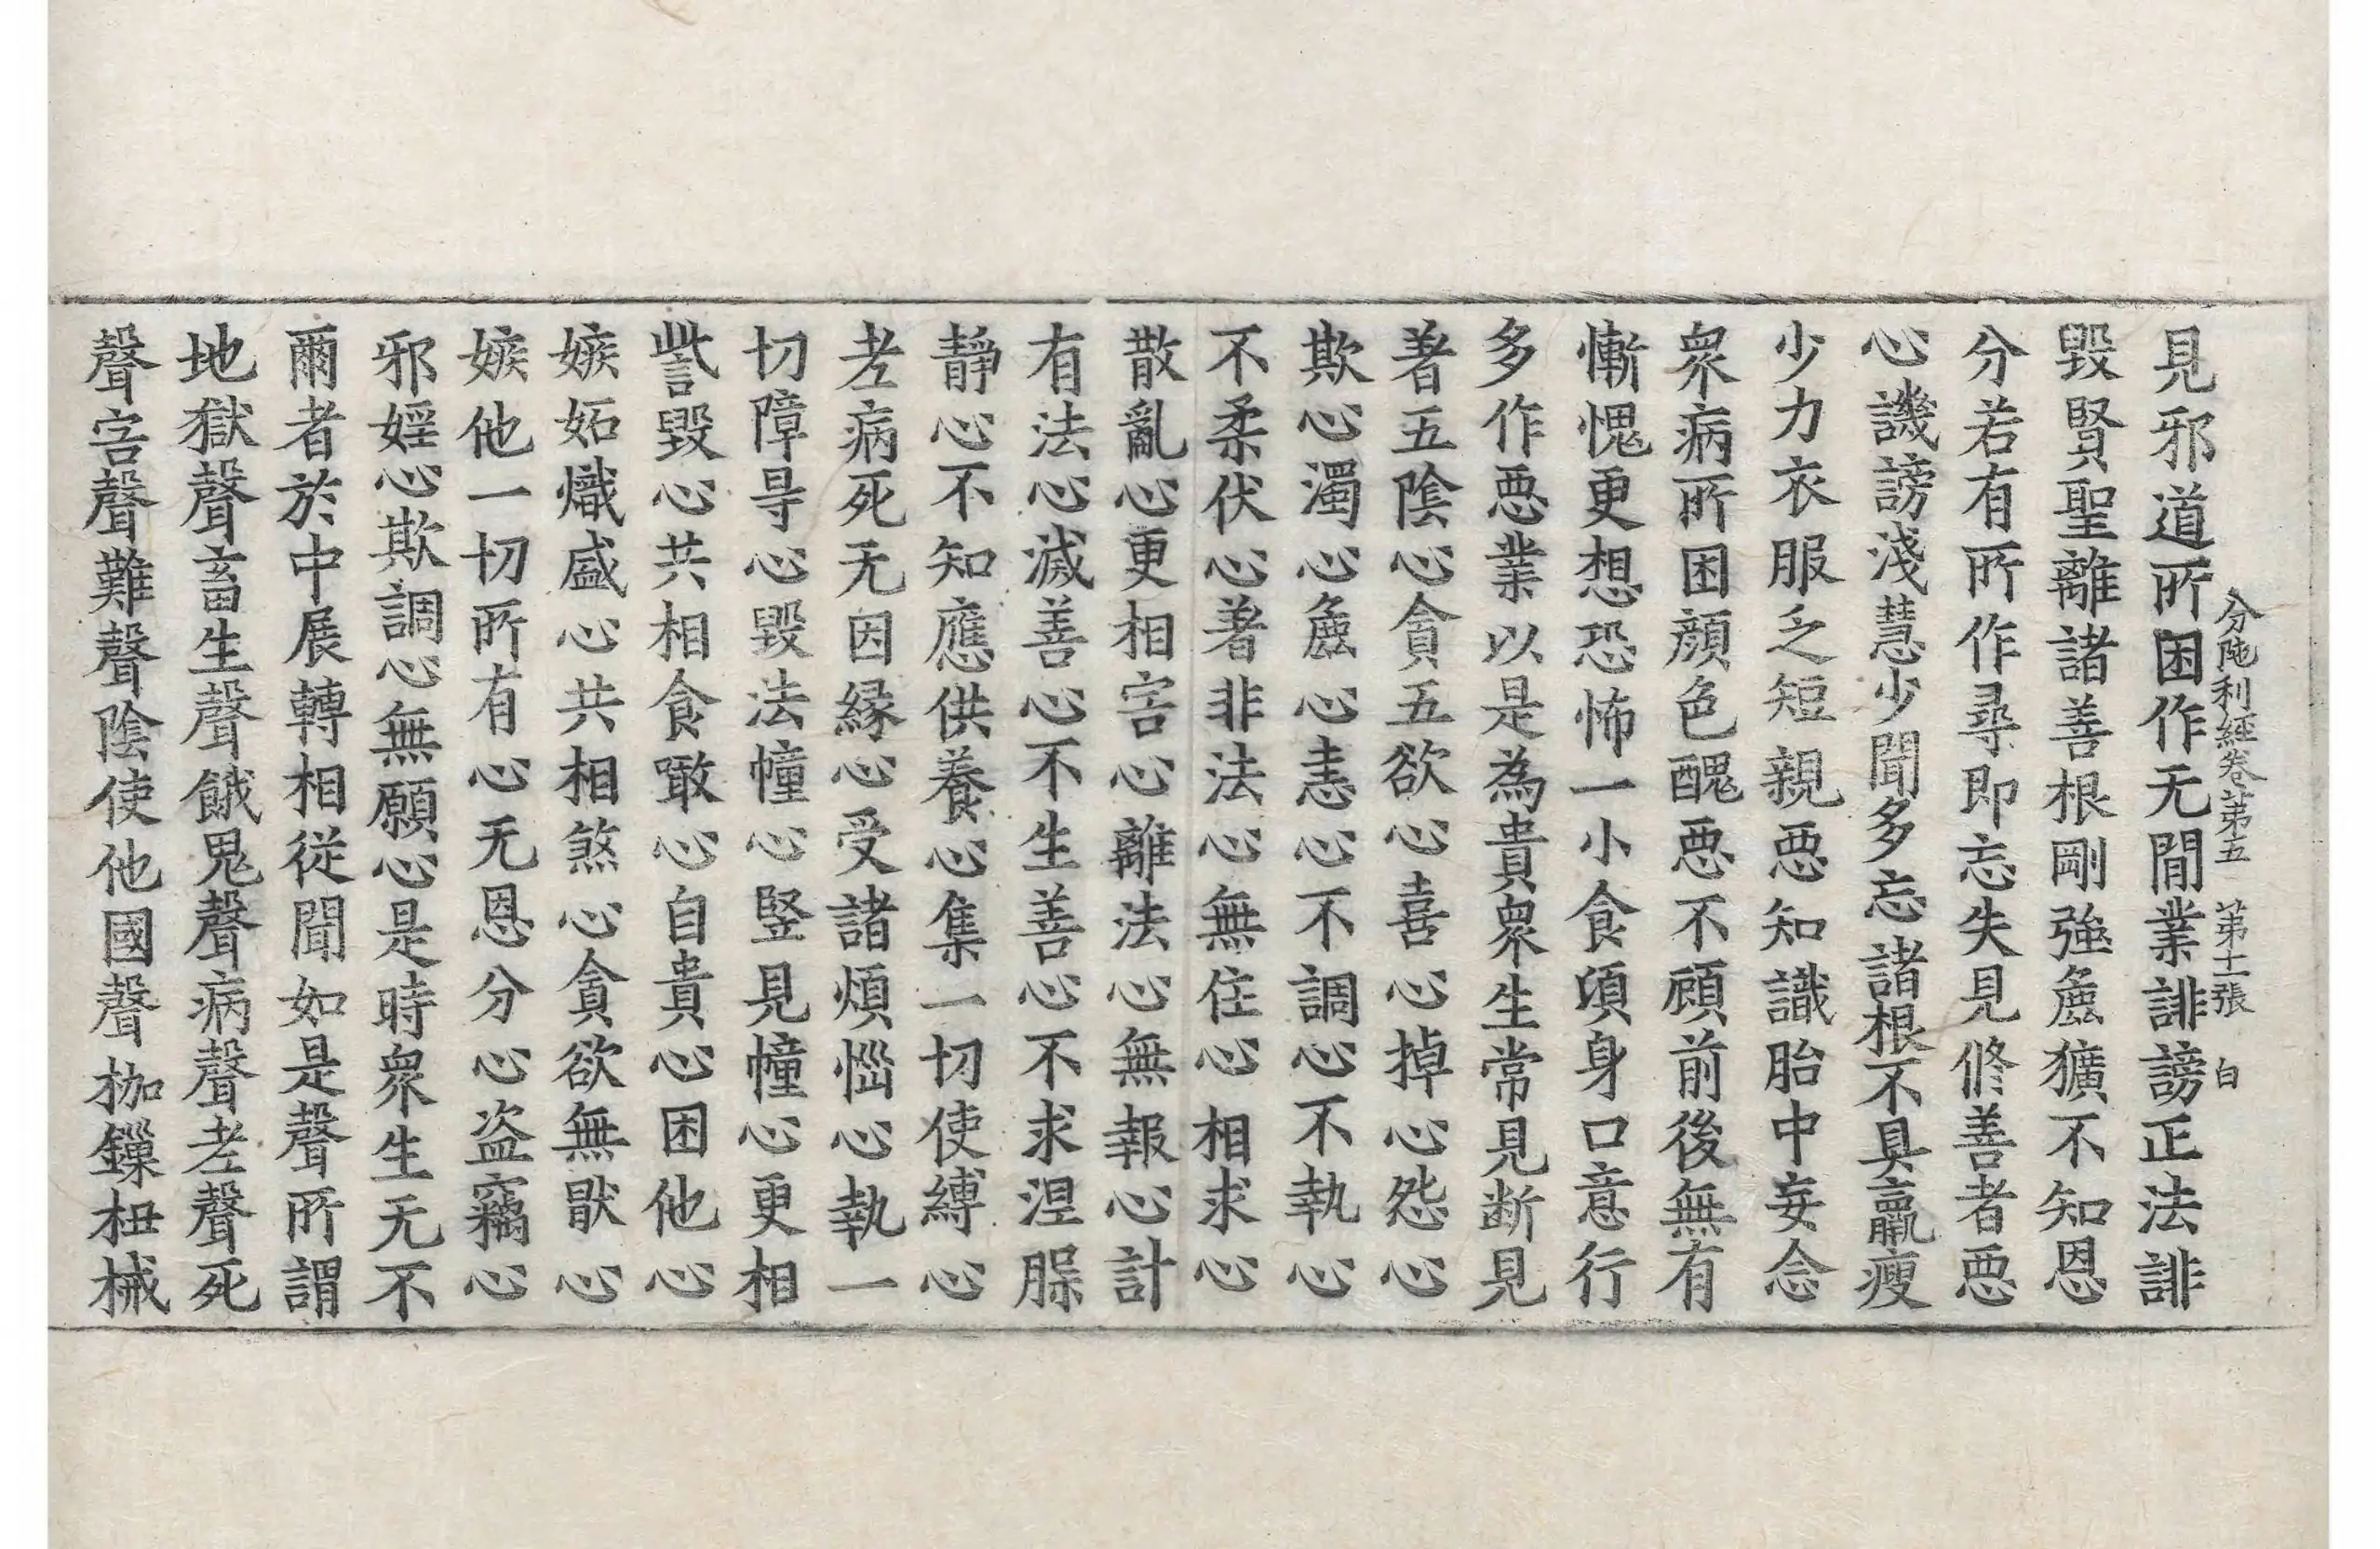 分陁利經卷第五 第十一張 白
見邪道所困作无間業誹謗正法誹
毀賢聖離諸善根剛強麁獷不知恩
分若有所作尋即忘失見修善者惡
心譏謗淺慧少聞多忘諸根不具羸瘦
少力衣服乏短親惡知識胎中妄念
衆病所困顔色醜惡不顧前後無有
慚愧更想恐怖一小食頃身口意行
多作惡業以是為貴衆生常見断見
著五陰心貪五欲心喜心掉心怨心
欺心濁心麁心恚心不調心不執心
不柔伏心著非法心無住心相求心
散亂心更相害心離法心無報心計
有法心滅善心不生善心不求涅槃
靜心不知應供養心集一切使縛心
老病死无因縁心受諸煩惱心執一
切障㝵心毀法幢心竪見幢心更相
訾毀心共相食噉心自貴心困他心
嫉妬熾盛心共相煞心貪欲無猒心
嫉他一切所有心无恩分心盗竊心
邪婬心欺調心無願心是時衆生无不
爾者於中展轉相從聞如是聲所謂
地獄聲畜生聲餓鬼聲病聲老聲死
聲害聲難聲陰使他國聲枷鏁杻械